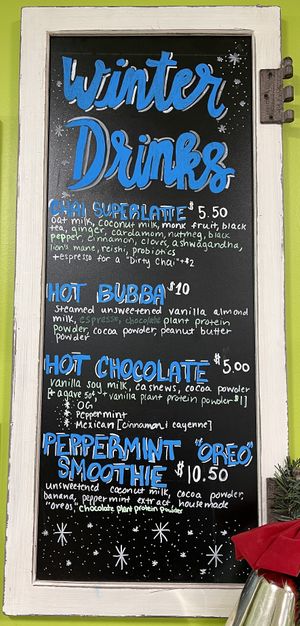 Winter
Drinks
CHAI SUPERLATTE $5.50
oat milk, coconut milk, monk fruit, black
tea, ginger, cardamom, nutmeg, black
pepper, cinnamon, cloves, ashwagandha,
lion's mane, reishi, probiotics
+espresso for a "Dirty Chai" +$2
HOT BUBBA $10
Steamed unsweetened vanilla almond
milk, espresso, chocolate plant protein
powder, cocoa powder, peanut butter
powder
HOT CHOCOLATE $5.00
vanilla soy milk, cashews, cocoa powder
[+ agave 50¢ + vanilla plant protein powder $1]
* OG
* Peppermint
* Mexican [cinnamon, cayenne]
PEPPERMINT "OREO"
SMOOTHIE $10.50
unsweetened coconut milk, cocoa powder,
banana, peppermint extract, housemade
"oreos", chocolate plant protein powder